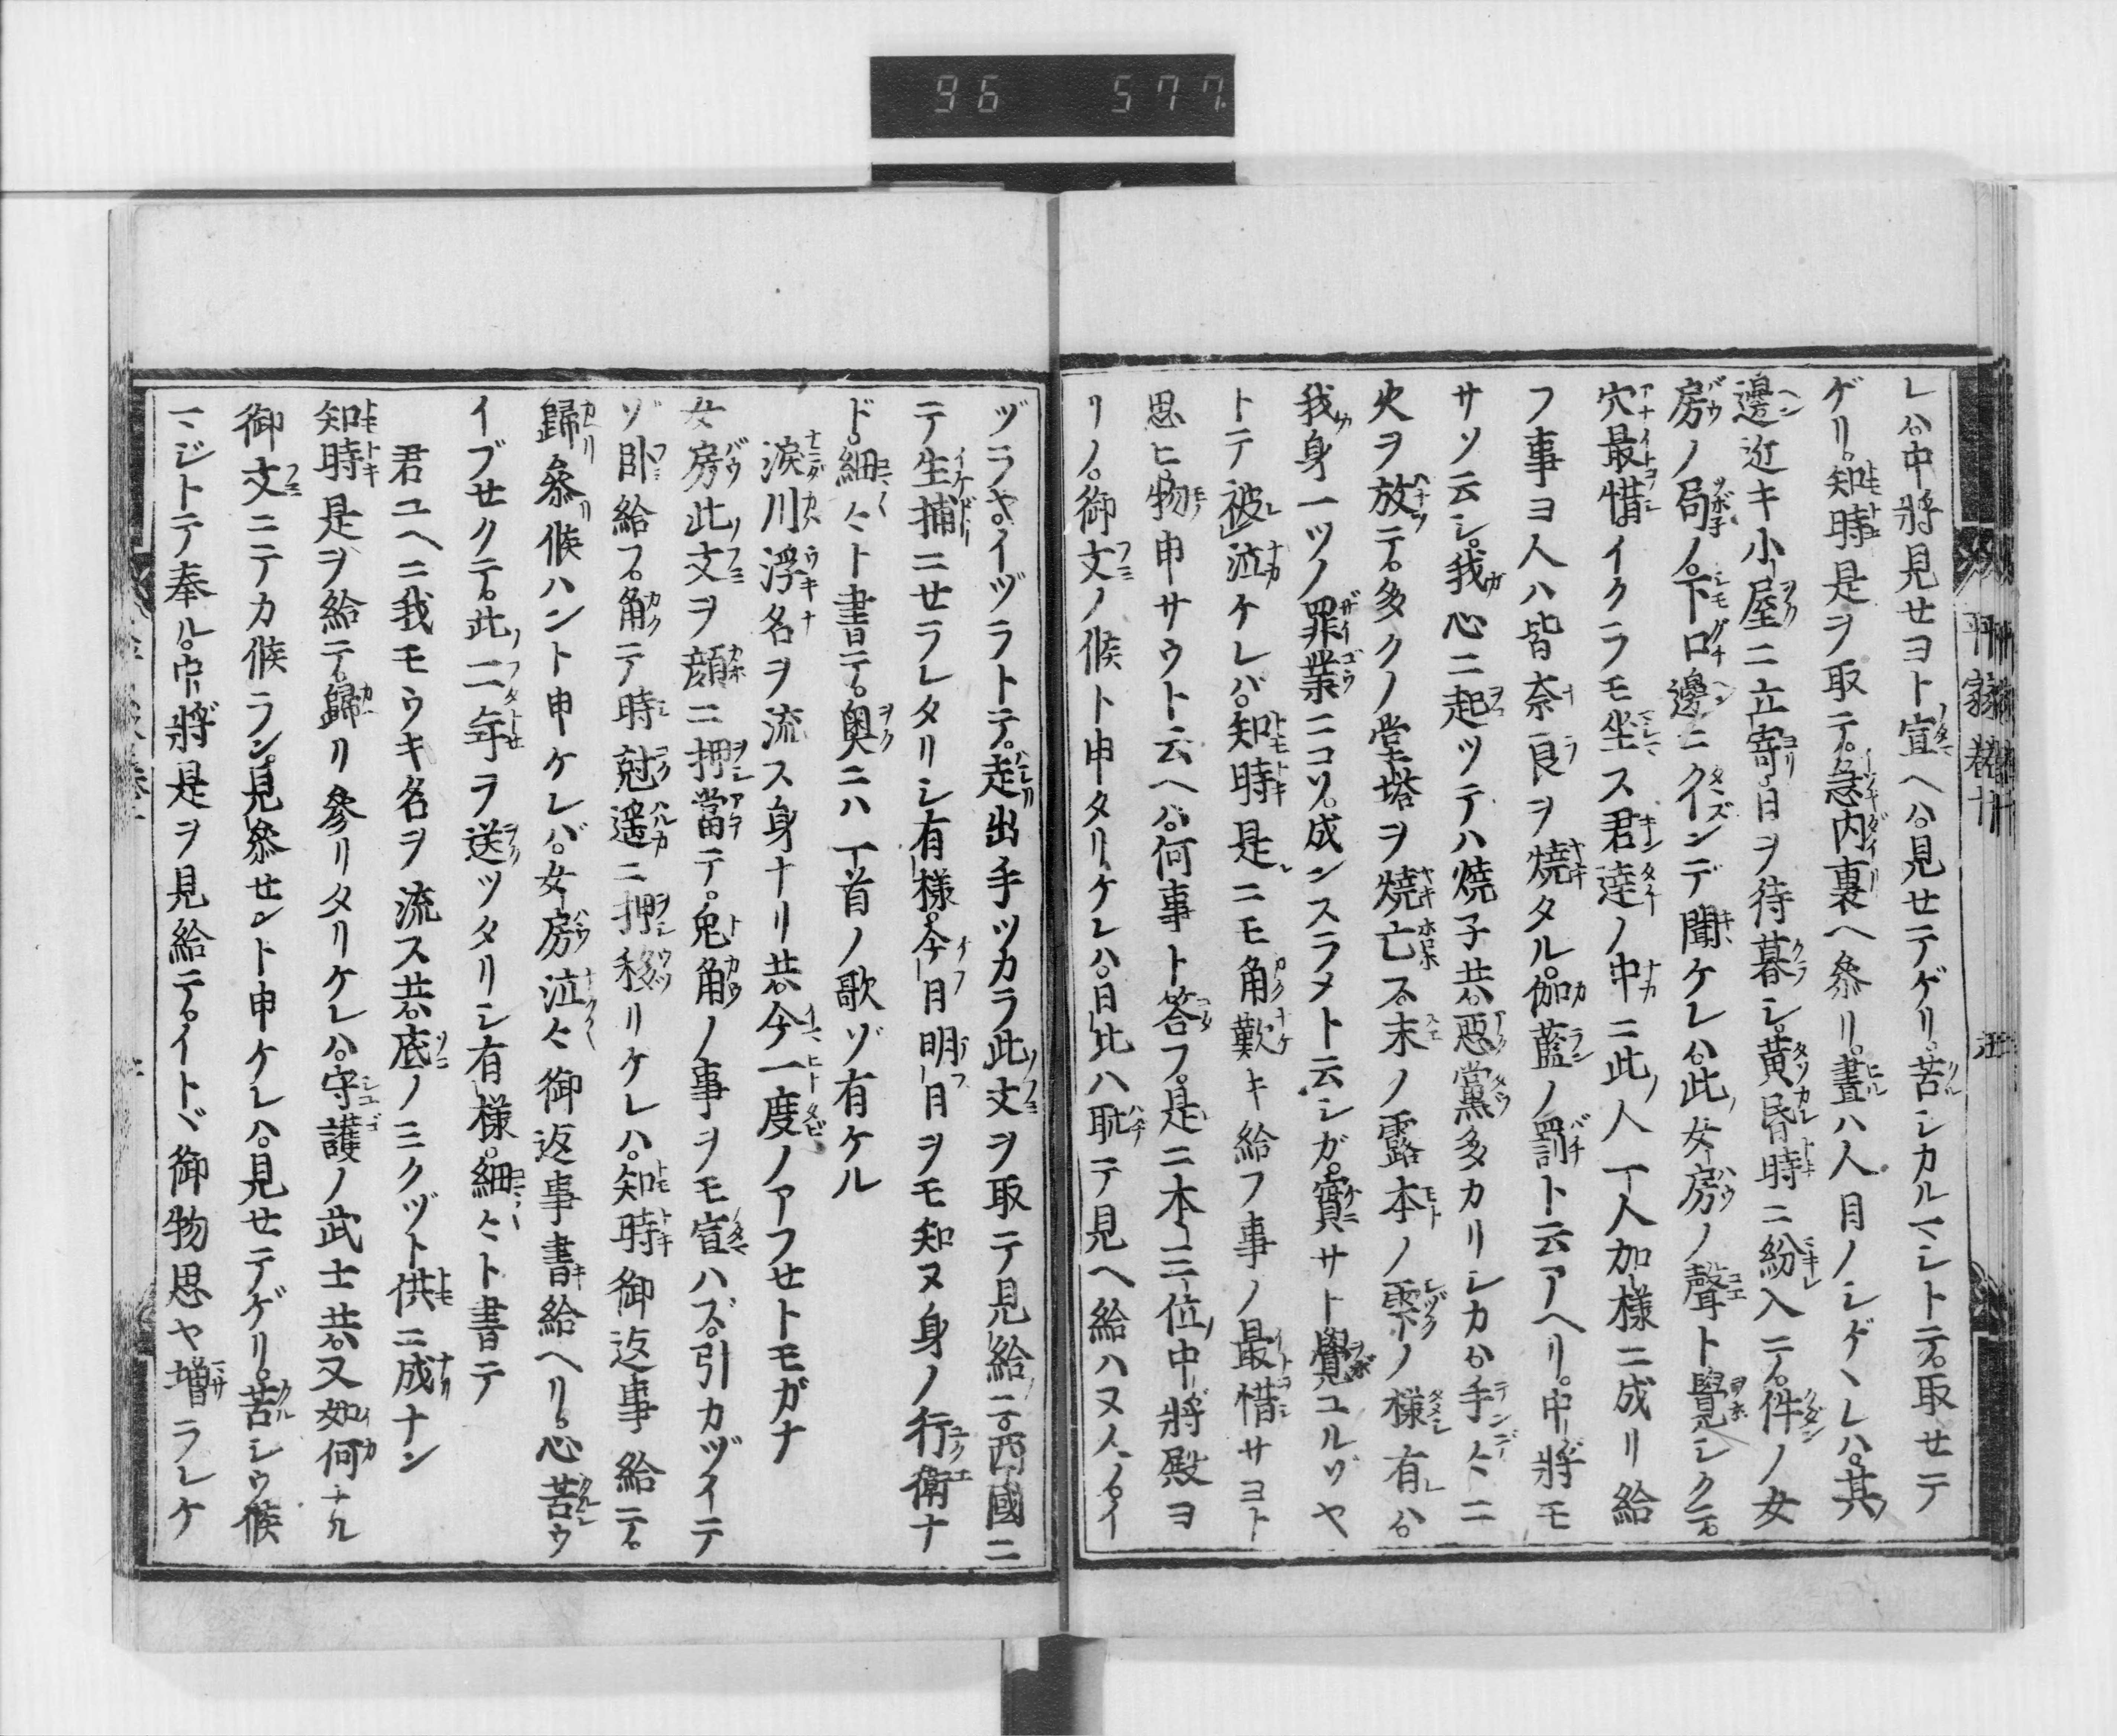 96 577
平家巻十 五
レバ。中將見セヨト宣ヘハ。見セテゲリ。苦シカルマシトテ。取セテ
ゲリ。知時是ヲ取テ。急内裏ヘ參リ。晝ハ人目ノシゲヽレハ。其
邊近キ小屋ニ立寄日ヲ待暮シ。黄昏時ニ紛入テ。件ノ女
房ノ局ノ。下口邊ニイズンデ聞ケレハ。此女房ノ聲ト覺シクテ。
穴最惜イクラモ坐ス君達ノ中ニ此人丁人加樣ニ成リ給
フ事ヨ人ハ皆奈良ヲ燒タル。伽藍ノ罰ト云アヘリ。中將モ
サソ云シ。我心ニ起ツテハ燒子共。惡黨多カリシカハ。手々ニ
火ヲ放テ。多クノ堂塔ヲ燒亡ス。末ノ露本ノ雫ノ樣有ハ。
我身一ツノ罪業ニコソ。成ンスラメト云シガ。實サト覺ユルゾヤ
トテ被泣ケレバ。知時是ニモ角歎キ給フ事ノ最惜サヨト
思ヒ物申サウト云ヘバ。何事ト答フ。是ニ本三位中將殿ヨ
リノ。御文ノ候ト申タリケレハ。日比ハ耻テ見ヘ給ハヌ人。イ
ヅラヤ。イヅラトテ。走出手ツカラ此文ヲ取テ見給ニ。西國ニ
テ生捕ニセラレタリシ有樣。今日明日ヲモ知ヌ身ノ行衛ナ
ド。細々ト書テ。奥ニハ丁首ノ歌ゾ有ケル
涙川浮名ヲ流ス身ナリ共。今一度ノアフセトモガナ
女房此文ヲ顔ニ押當テ。兎角ノ事ヲモ宣ハズ。引カヅイテ
ゾ臥給フ。角テ時尅遥ニ押移リケレハ。知時御返事給テ。
歸參候ハント申ケレバ。女房泣々御返事書給ヘリ。心苦ウ
イブセクテ。此二年ヲ送ツタリシ有樣。細々ト書テ
君ユヘニ我モウキ名ヲ流ス共。底ノミクヅト供ニ成ナン
知時是ヲ給テ。歸リ參リタリケレハ。守護ノ武士共。又如何ナル
御文ニテカ候ラン。見參セント申ケレハ。見セテゲリ。苦シウ候
マジトテ奉ル。中將是ヲ見給テ。イトヾ御物思ヤ増ラレケ